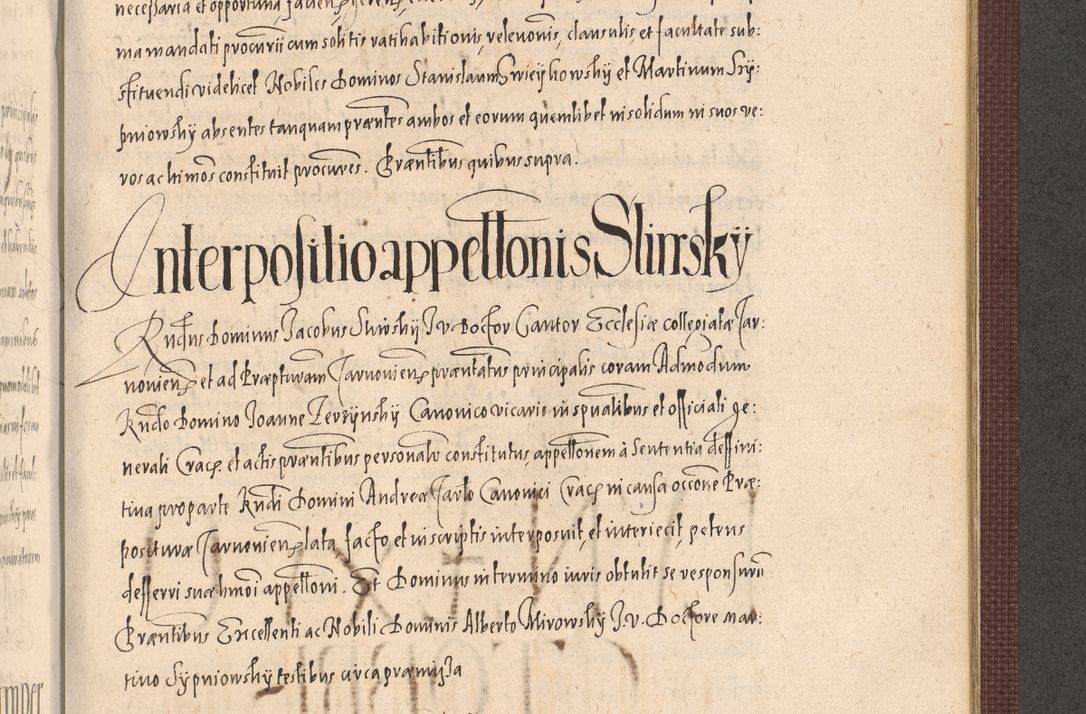 necessaria et opportuna facien
ma mandati procurii cum solitis ratihabitionis, relevonis, clausulis, et facultate sub:
stituendi videlicet Nobiles Dominos Stanislaum Swieÿkowskÿ et Martinum Szÿ:
pniowskÿ absentes tanquam præntes ambos et eorum quemlibet in solidum in suos ve:
ros ac ltimos constituit procures. Præntibus quibus supra.
Interpositio appelltonis Slimskÿ
Rndus Dominus Jacobus Sliwskÿ J. v. Doctor Cantor Ecclesiæ collegiatæ Jar:
novien et ad Præptturam Jarnovien præntatus principalis coram Admodum
Rndo Domino Joanne Zerzÿnskÿ Canonico vicario in spualibus et officiali ge:
nerali Crac. et actis præntibus personalr constitutus, appelltonem à sententia deffini:
tiva pro parte Rndi Domini Andreæ Jarlo Canonici Crac in causa occone Præ:
posituræ Jarnovien lata facto, et in scriptis interposuit, et interiecit, petens
defferri suæ hmoi appelltoni. Et Dominus in termino iuris obtulit se responsurum
Præntibus Excellenti ac Nobili Dominis Alberto Mirowskÿ J. v. Doctore Mar:
tino Sÿpniowskÿ testibus circa præmissa